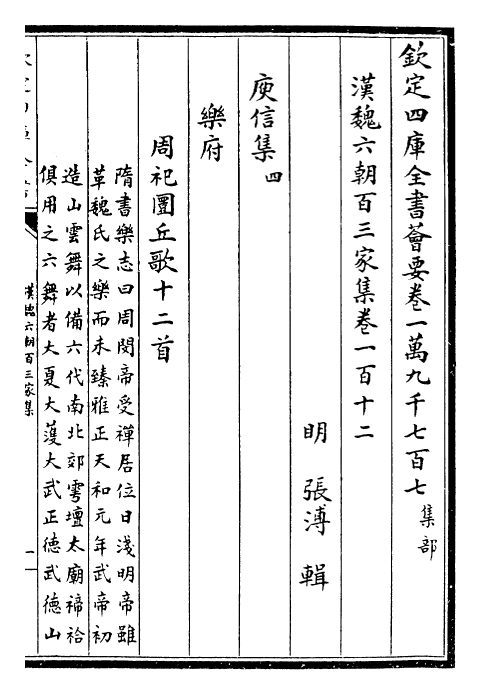 欽定四庫全書薈要卷一萬九千七百七集部
漢魏六朝百三家集卷一百十二
明 張溥 輯
庾信集四
樂府
周祀圜丘歌十二首
隋書樂志曰周閔帝受禪居位日淺明帝雖
革魏氏之樂而未臻雅正天和元年武帝初
造山雲舞以備六代南北郊雩壇太廟禘祫
俱用之六舞者大夏大濩大武正德武德山
漢魏六朝百三家集
一